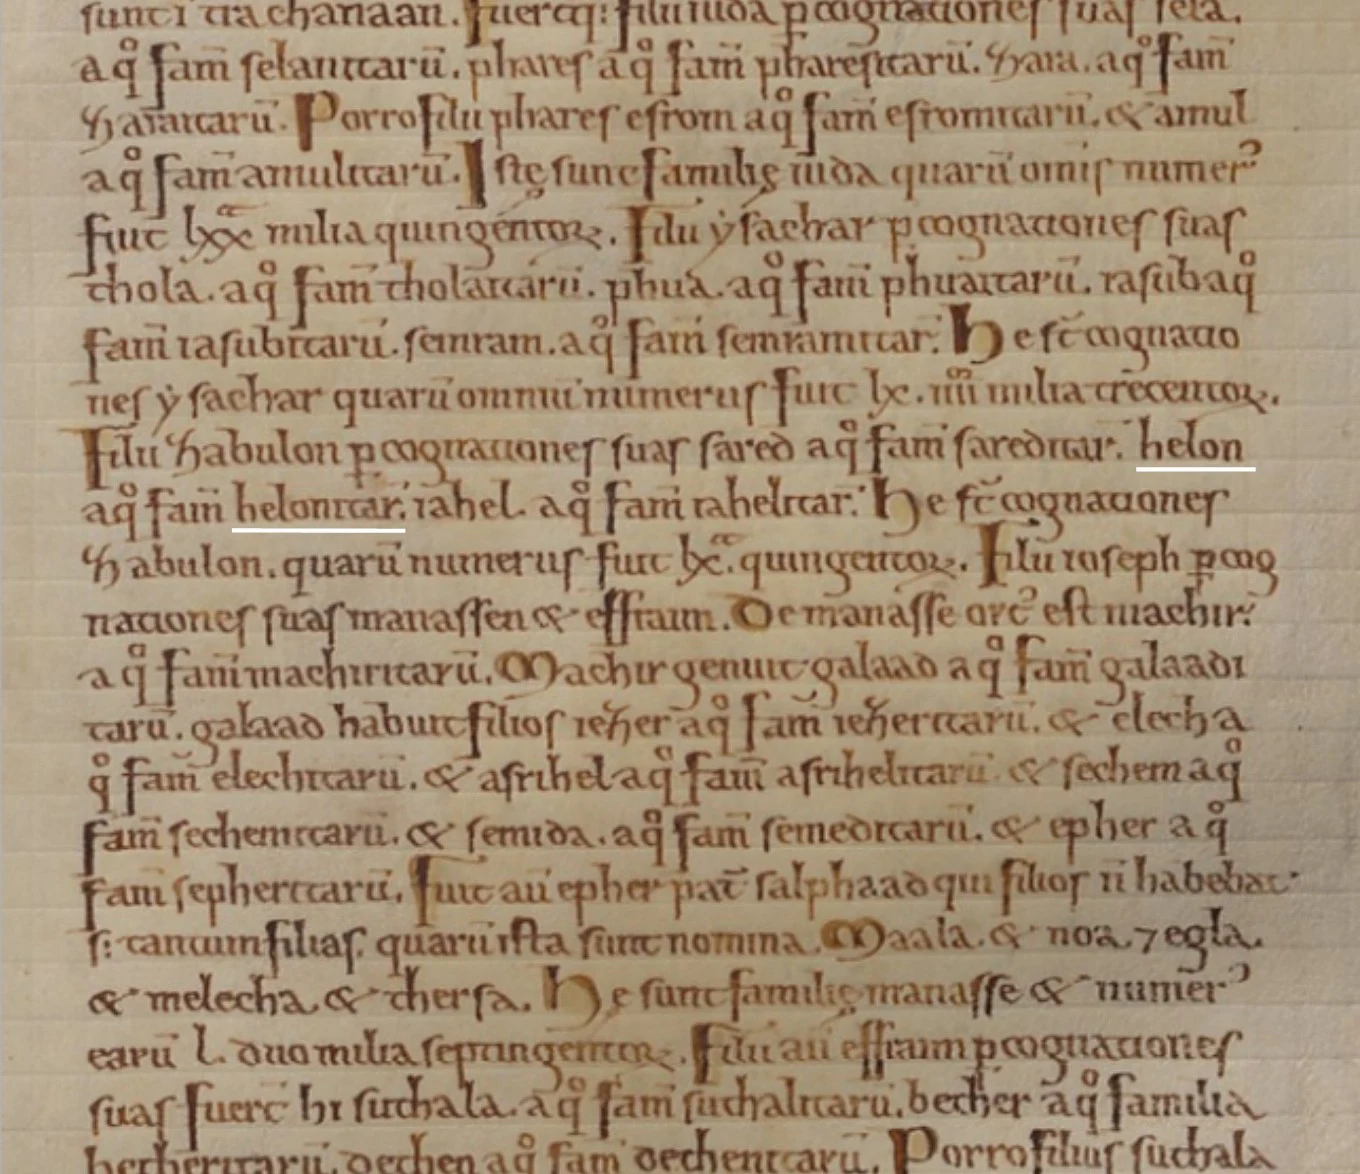 sunt ĩ tra chanaan. fuerq;: filii iuda ꝑ cognationes suas sela.
a qͦ fam̄ selanitarū. phares a qͦ fam̄ pharesitarū. zara. a qͦ fam̄
zaraitarū. Porro filii phares esrom a qͦ fam̄ esromitarū. & amul
a qͦ fam̄ amulitarū. Istę sunt familię iuda quarū omis numerꝰ
fuit lxx milia quingentoꝝ. Filii ẏsachar ꝑ cognationes suas
thola. a qͦ fam̄ tholaitarū. phua. a qͦ fam̄ phuaitarū. iasub a qͦ
fam̄ iasubitarū. semram. a qͦ fam̄ semramitar. He st̄ cognatio
nes ẏsachar quarū omniū numerus fuit lx. iiii milia trecentoꝝ.
Filii zabulon ꝑ cognationes suas sared a qͦ fam̄ sareditar. helon
a qͦ fam̄ helonitar. iahel. a qͦ fam̄ iahelitar. He st̄ cognationes
zabulon. quarū numerus fuit lx. quingentoꝝ. Filii ioseph ꝑ cog
nationes suas manassen & effraim. De manasse ort᷒ est machir.
a qͦ fam̄ machiritarū. Machir genuit galaad a qͦ fam̄ galaadi
tarū. galaad habuit filios iezer a qͦ fam̄ iezeritarū. & elech a
qͦ fam̄ elechitarū. & asrihel a qͦ fam̄ asrihelitarū. & sechem a qͦ
fam̄ sechemitarū. & semida. a qͦ fam̄ semeditarū. & epher a qͦ
fam̄ sepheritarū. Fuit aū epher pat̄ salphaad qui filios n̄ habebat
s: tantum filias. quarū ista sunt nomina. Maala. & noa. ⁊ egla.
& melecha & thersa. He sunt familię manasse & numerꝰ
earū l. duo milia septingentoꝝ. Filii aū effraim ꝑ cognationes
suas fuer̄t hi suthala. a qͦ fam̄ suthalitarū. becher a qͦ familia
becheritarū. dechen a qͦ fam̄ dechenitarū. Porro filius suthala